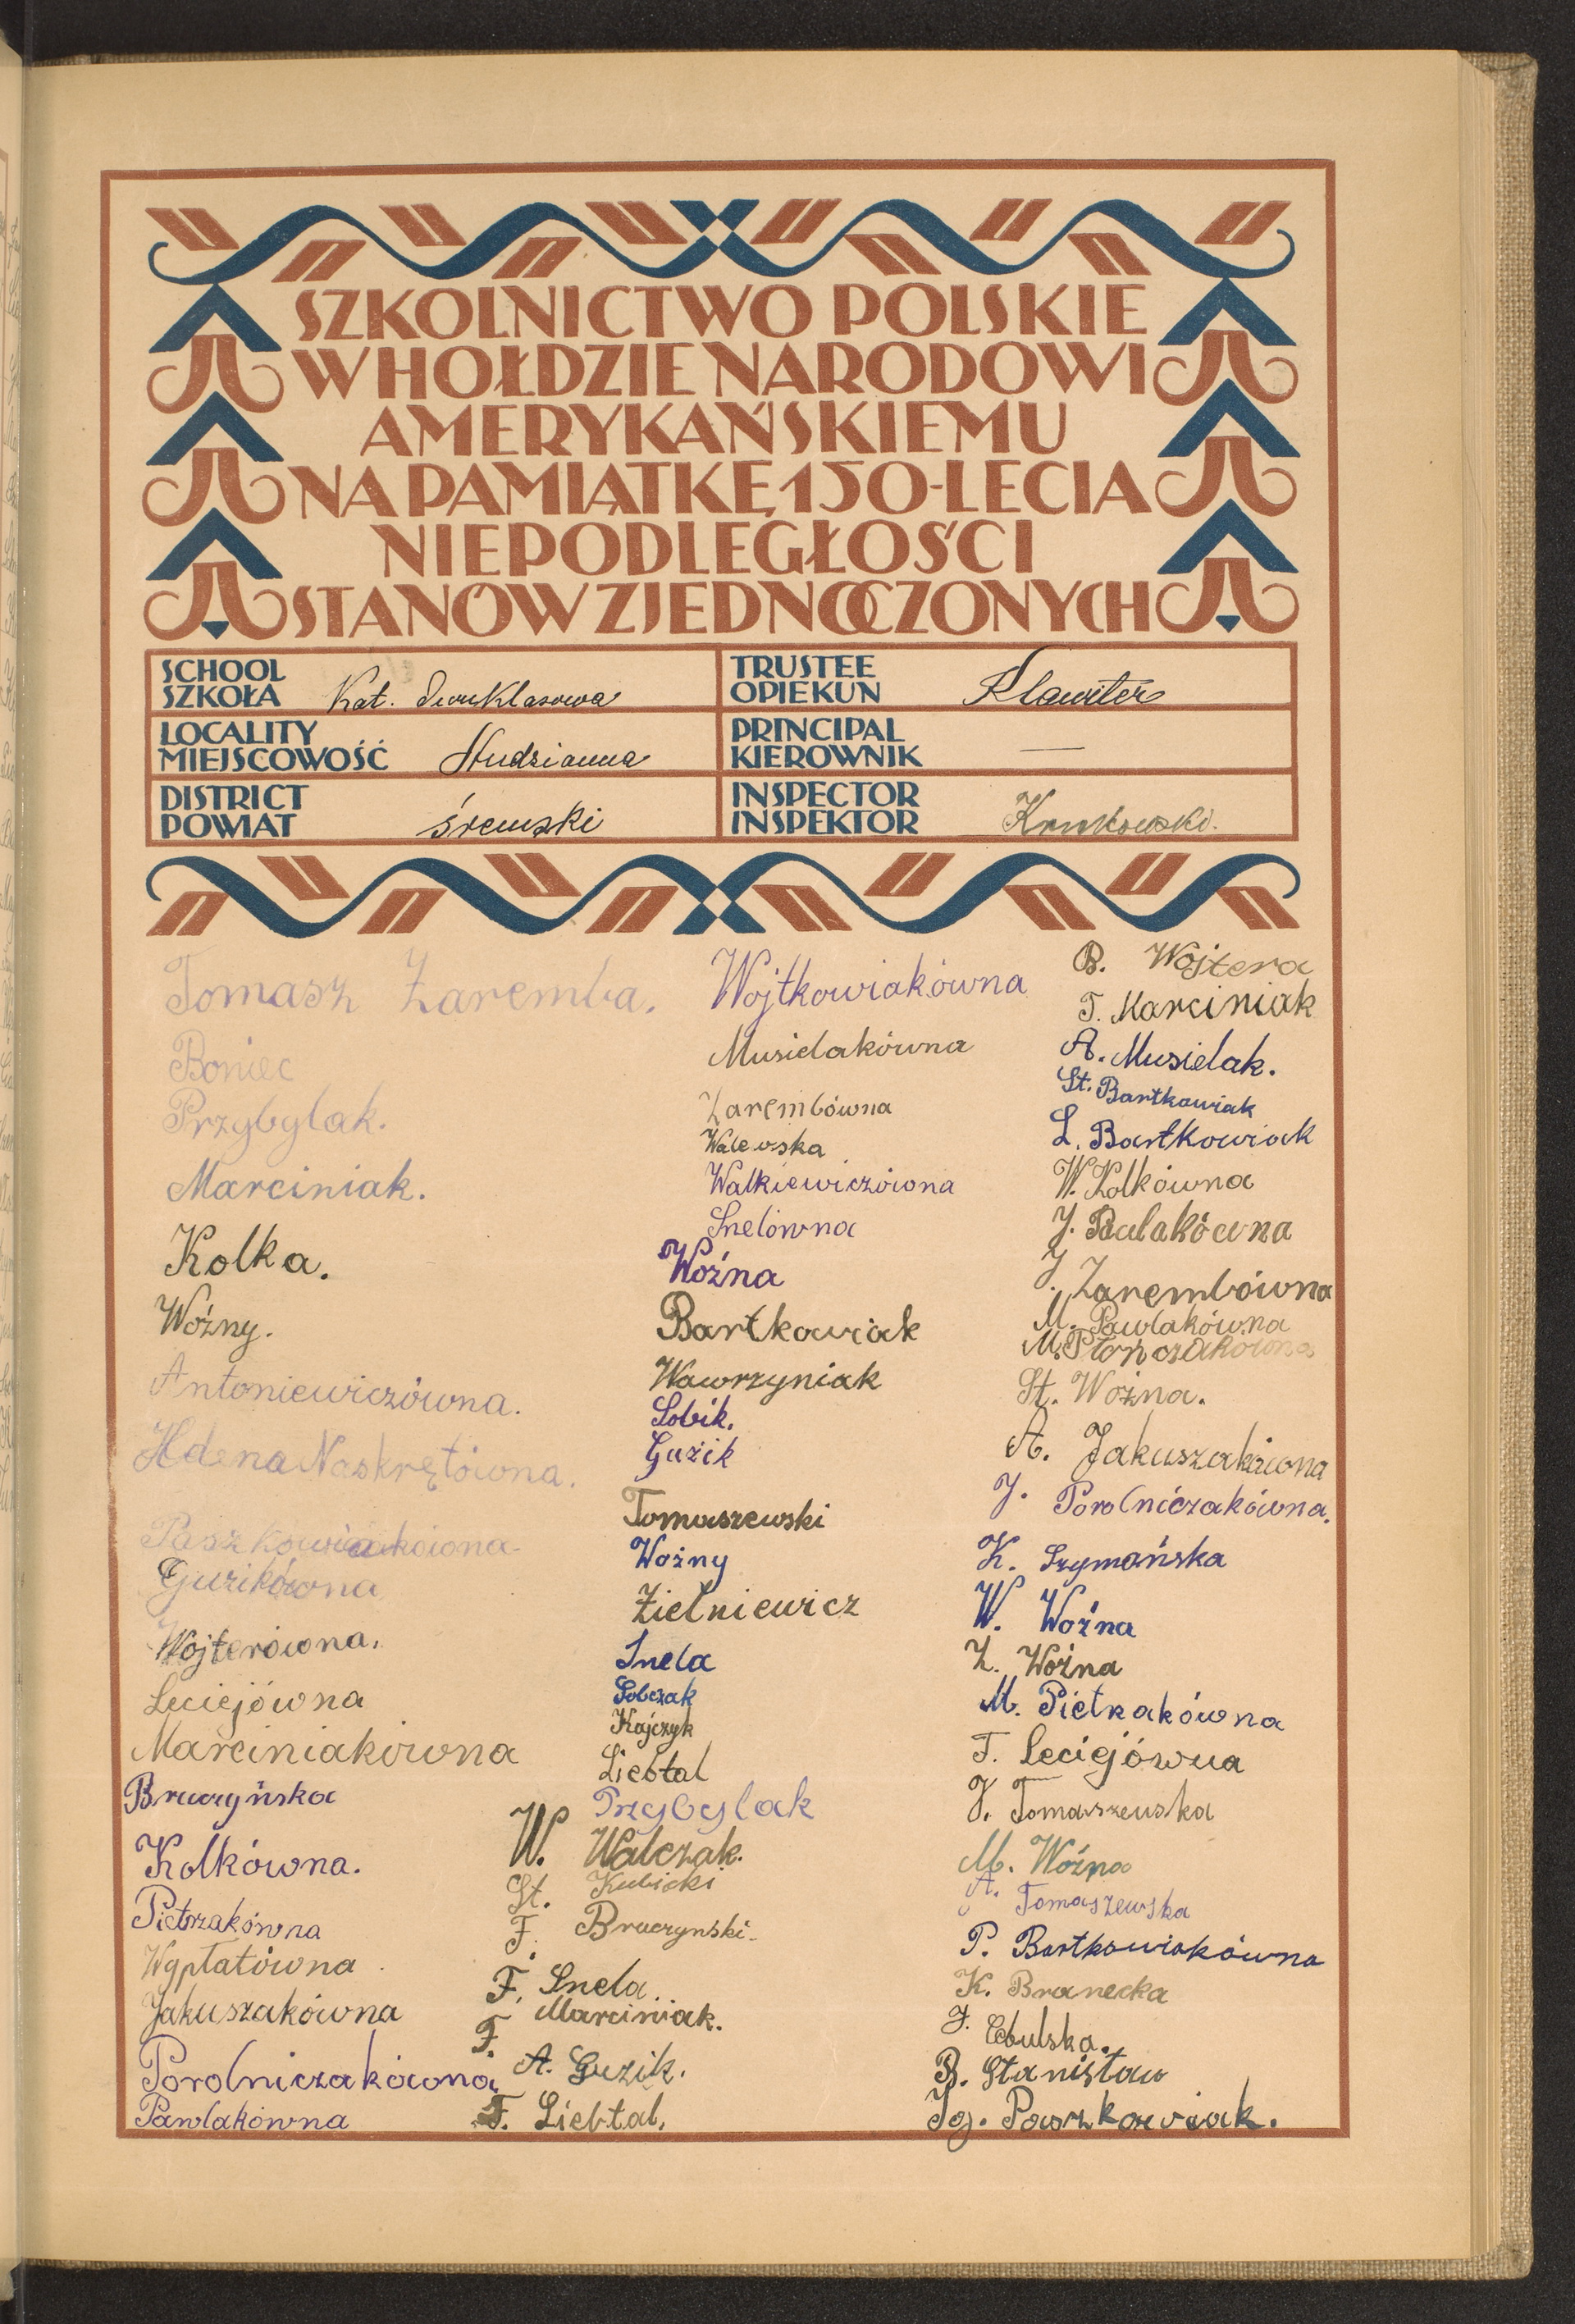 SZKOLNICTWO POLSKIE
W HOŁDZIE NARODOWI
AMERYKAŃSKIEMU
NA PAMIĄTKĘ 150-LECIA
NIEPODLEGŁOŚCI
STANÓW ZJEDNOCZONYCH
SCHOOL
SZKOŁA Kat. dwuklasowa
TRUSTEE
OPIEKUN Klawiter
LOCALITY
MIEJSCOWOŚĆ Studzianna
PRINCIPAL
KIEROWNIK —
DISTRICT
POWIAT śremski
INSPECTOR
INSPEKTOR Krukowski.
Tomasz Zaremba.
Boniec
Przybylak.
Marciniak.
Kolka.
Woźny.
Antoniewiczówna.
Helena Naskrętówna.
Paszkowiakówna
Guzikówna
Wojterówna.
Leciejówna
Marciniakówna
Bruczyńska
Kolkówna.
Pietrzakówna
Wypłatówna
Jakuszakówna
Porolniczakówna
Pawlakówna
Wojtkowiakówna
Musielakówna
Zarembówna
Walewska
Walkiewiczówna
Snelówna
Woźna
Bartkowiak
Wawrzyniak
Sobik.
Guzik
Tomaszewski
Woźny
Zielniewicz
Snela
Sobczak
Kajczyk
Liebtal
Przybylak
W. Walczak.
St. Kubicki
F. Bruczynski.
F. Snela.
F. Marciniak.
A. Guzik.
F. Liebtal.
B. Wojtera
T. Marciniak
A. Musielak.
St. Bartkowiak
L. Bartkowiak
W. Kolkówna
J. Bulakówna
J. Zarembówna
M. Pawlakówna
M. Płończakówna
St. Woźna.
A. Jakuszakówna
J. Porolniczakówna.
K. Szymańska
W. Woźna
Z. Woźna
M. Pietrzakówna
T. Leciejówna
J. Tomaszewska
M. Woźna
A. Tomaszewska
P. Bartkowiakówna
K. Branecka
J. Cebulska.
B. Stanisław
Ig. Paszkowiak.